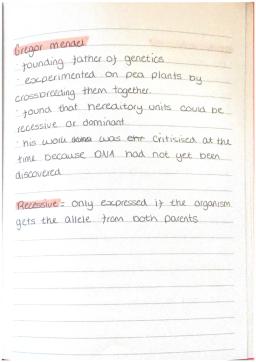 Gregor mendel
· founding father of genetics
· experimented on pea plants by
crossbreeding them together.
· found that hereditory units could be
recessive or dominant
· his work was critisised at the
time because DNA had not yet been
discovered
Recessive = only expressed if the organism
gets the allele from both parents